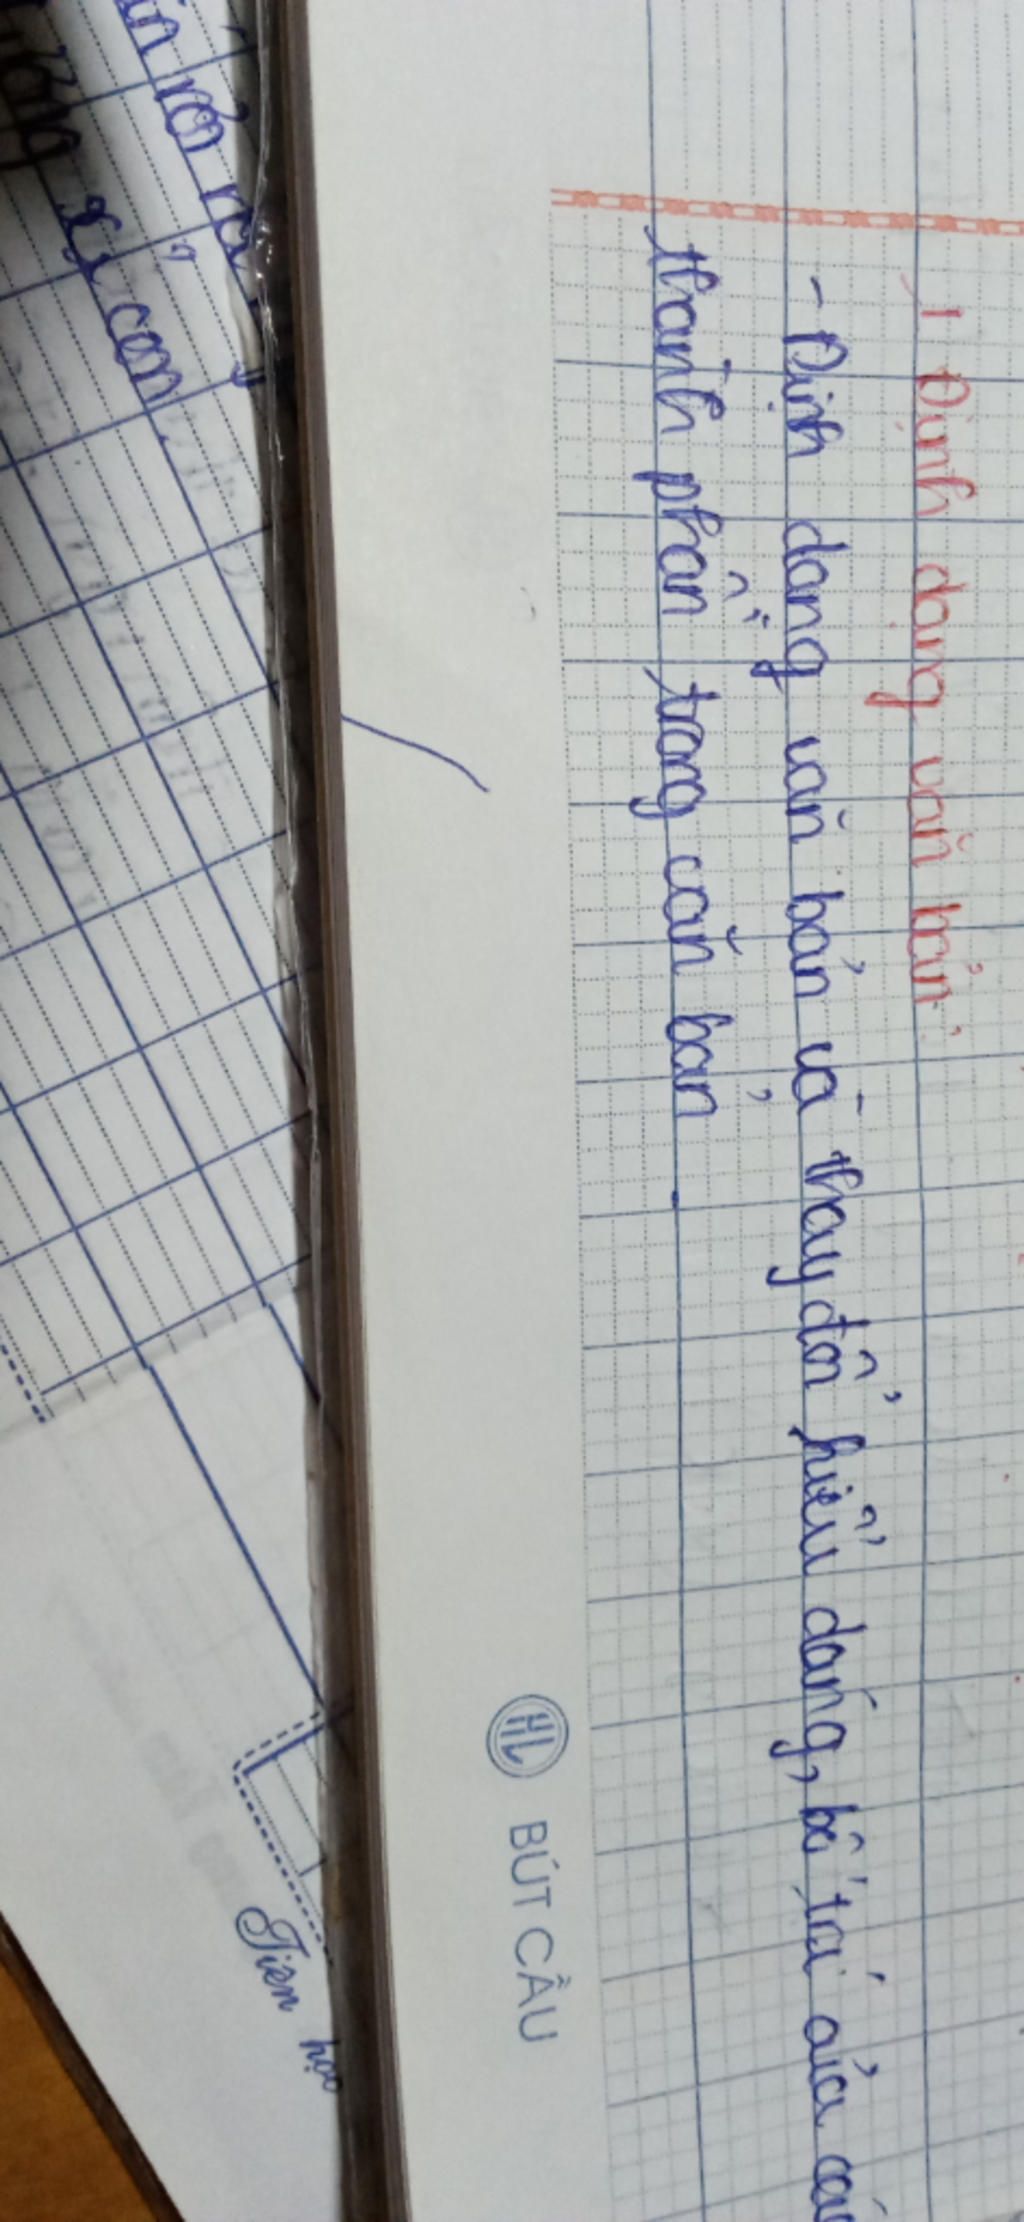 1 Định dạng văn bản
- Định dạng văn bản và thay đổi hiểu dáng, bố trí của các
thành phần trong căn bản.
BÚT CẦU
rộn rã
xi can
Tiên học